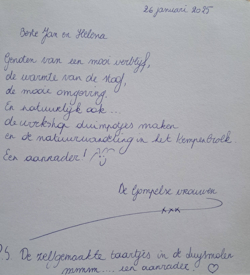 26 januari 2025
Beste Jan en Helena
Genoten van een mooi verblijf,
de warmte van de stoof,
de mooie omgeving.
En natuurlijk ook....
de workshop duimpotjes maken
en de natuurwandeling in het Kempenbroek.
Een aanrader!
De Gompelse vrouwen
xxx
P.S. De zelfgemaakte taartjes in de Luysmolen
mmm.... een aanrader ♡